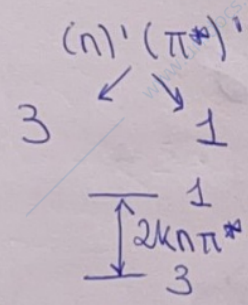 (n)¹ (π*)¹
3 1
1
2Knπ*
3